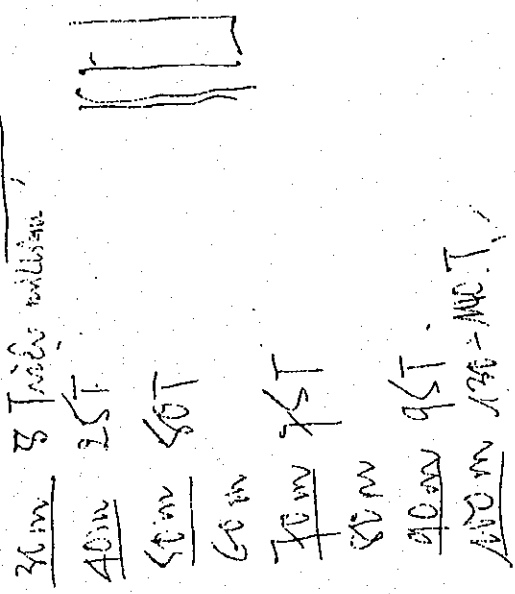 30m 8 Triệu million
40m 25T
50m 50T
60m
70m 75T
80m
90m 95T
100m 130-140T